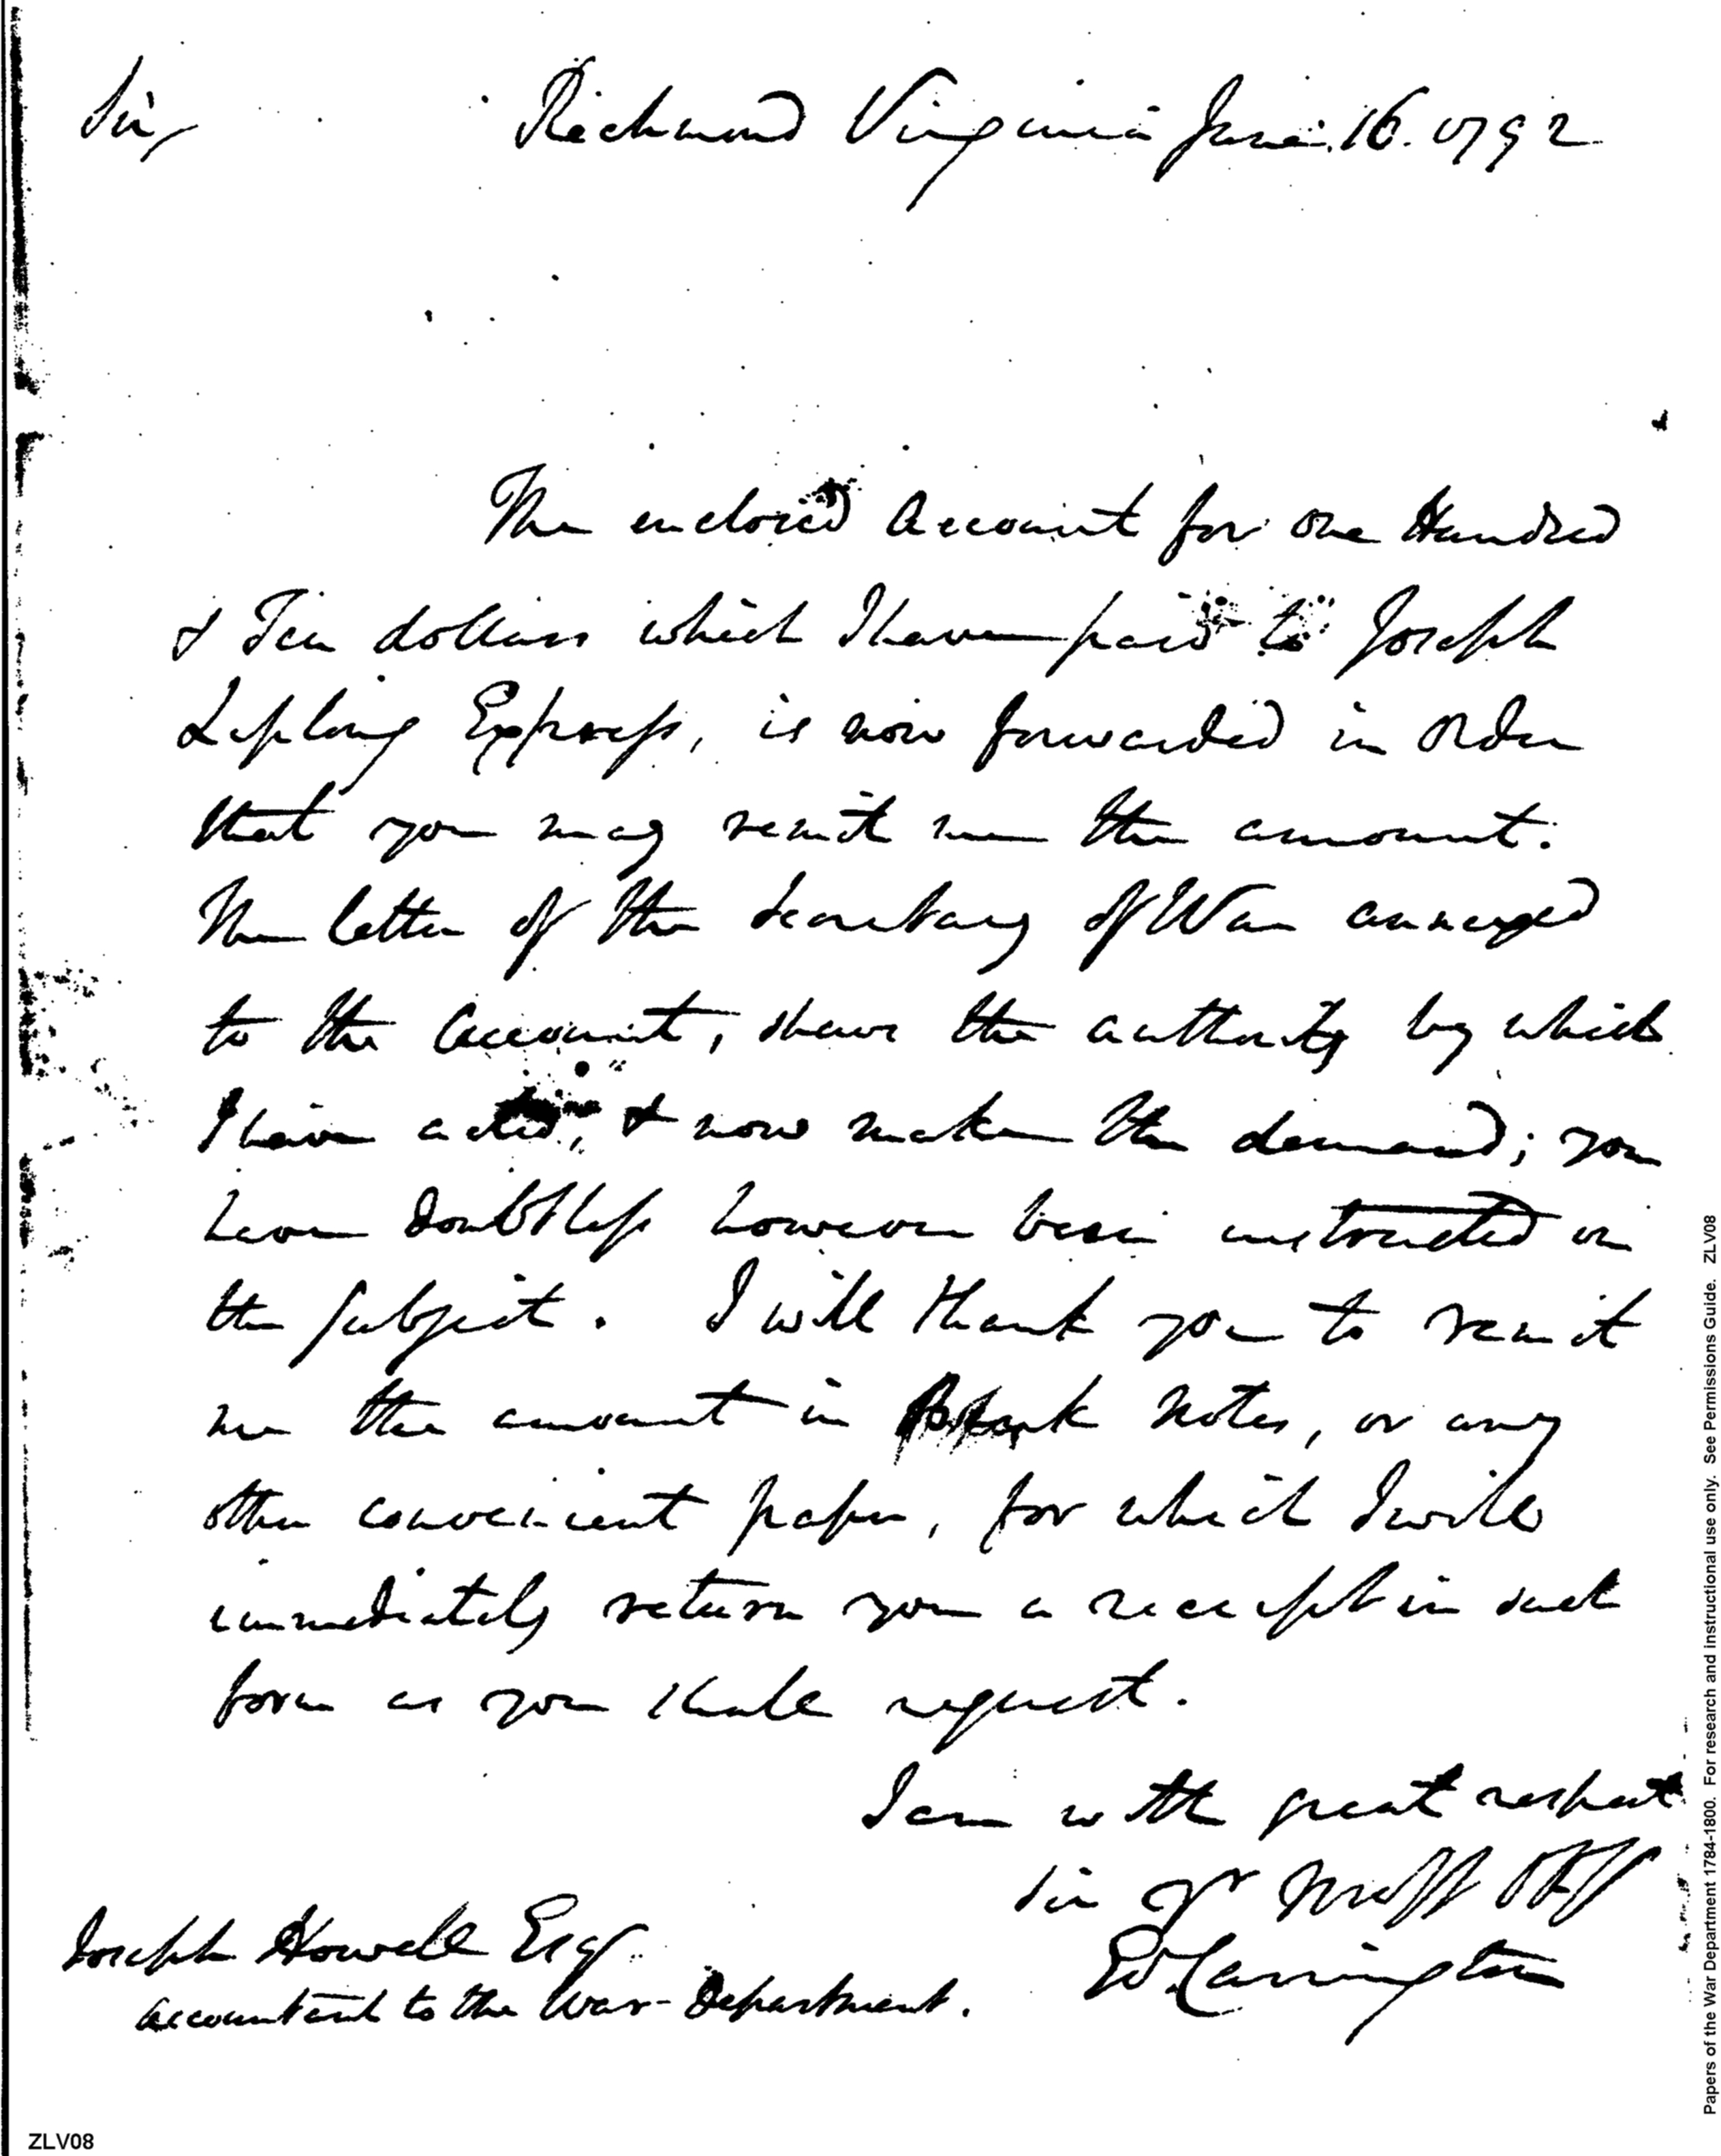 Sir, Richmond Virginia June 16. 1792
The enclosed account for one Hundred
& Ten dollars which I have paid to Joseph
Express, is now forwarded in Order
that you may remit me the amount.
The letter of the Secretary of War annexed
to the account, shews the authority by which
I have acted, & now make the demand; you
have doubtless however been instructed on
the subject. I will thank you to remit
me the amount in Bank notes, or any
other convenient paper, for which I will
immediately return you a receipt in such
form as you shall request.
I am with great respect
Sir Yr Most Obt
Ed. Carrington
Joseph Howell Esqr
Accountant to the War Department.
ZLV08
Papers of the War Department 1784-1800. For research and instructional use only. See Permissions Guide. ZLV08